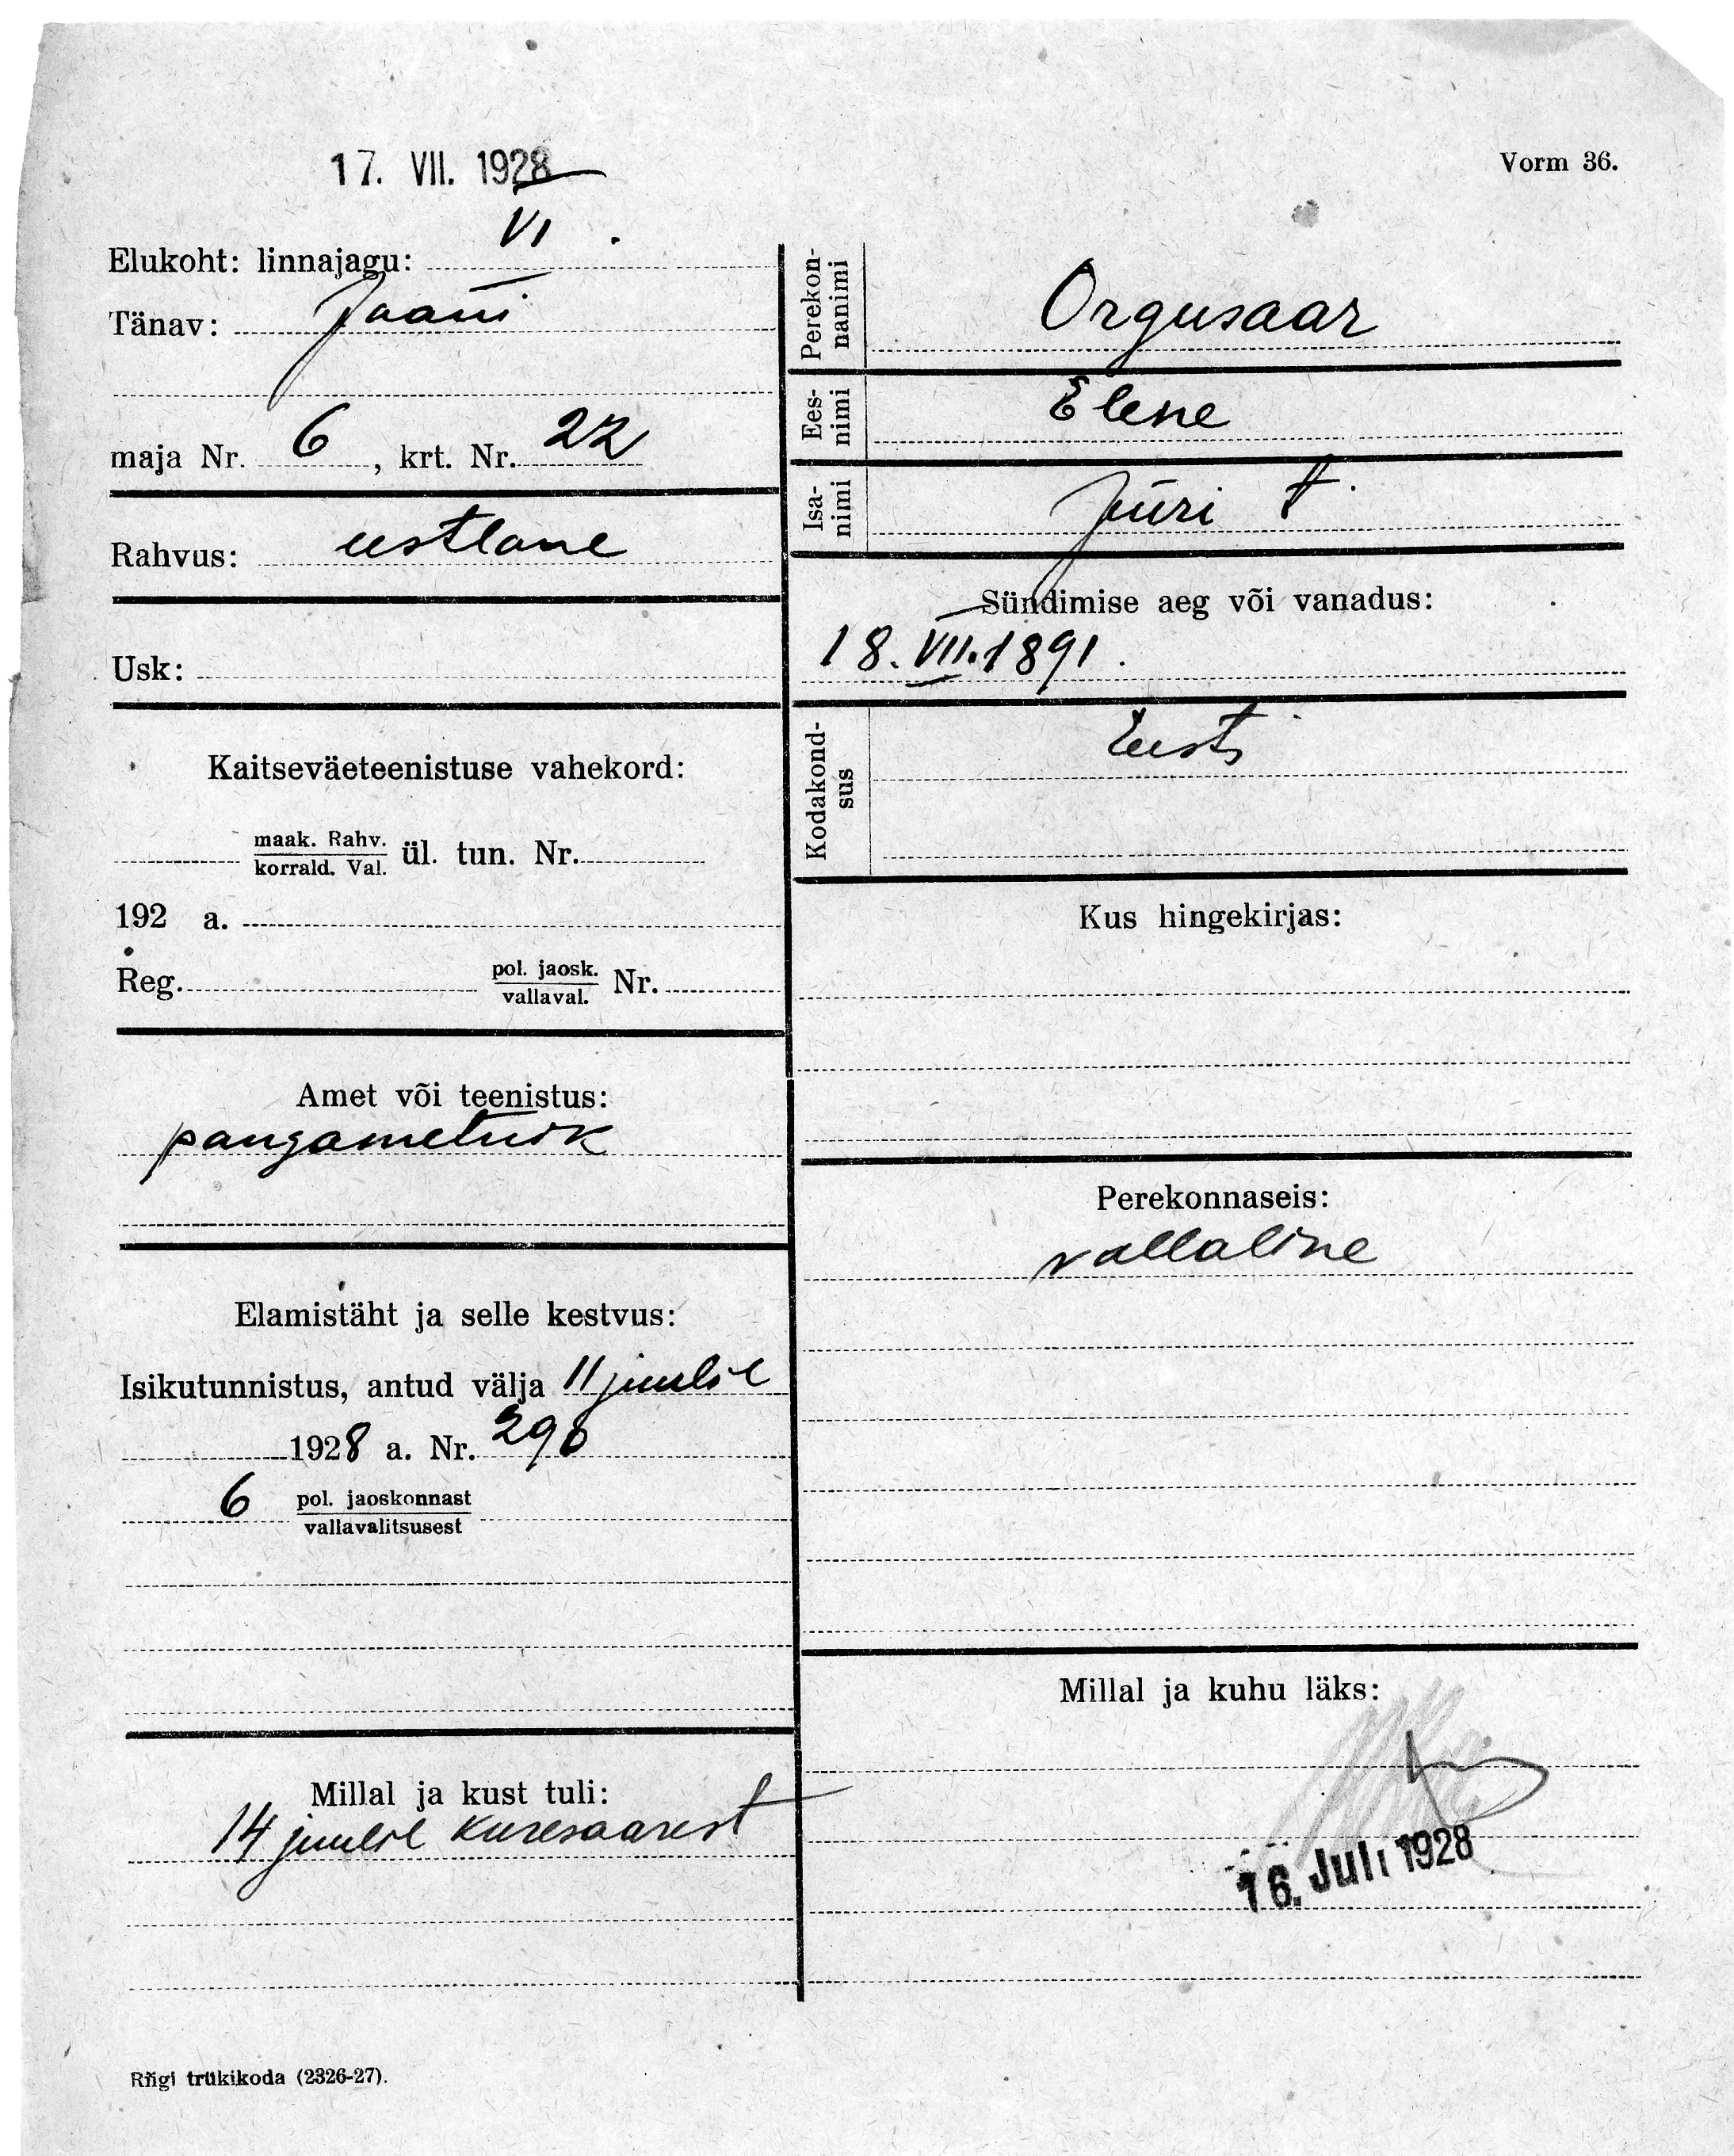 17. VII. 1928
Vorm 36.
Elukoht: linnajagu: VI
Tänav: Jaani
maja Nr. 6, krt. Nr. 22
Rahvus: eestlane
Usk:
Kaitseväeteenistuse vahekord:
maak. Rahv.
korrald. Val.
ül. tun. Nr.
192 a.
Reg. pol. jaosk.
vallaval.
Nr.
Amet või teenistus:
pangametnik
Elamistäht ja selle kestvus:
Isikutunnistus, antud välja 11 juulil
1928 a. Nr. 296
6 pol. jaoskonnast
vallavalitsusest
Millal ja kust tuli:
14 juulil Kuresaarest
Perekon-
nanimi
Orgusaar
Ees-
nimi
Elene
Isa-
nimi
Jüri t.
Sündimise aeg või vanadus:
18. VII. 1891.
Kodakond-
sus
Eesti
Kus hingekirjas:
Perekonnaseis:
vallaline
Millal ja kuhu läks:
16. Juli 1928
Riigi trükikoda (2326-27).